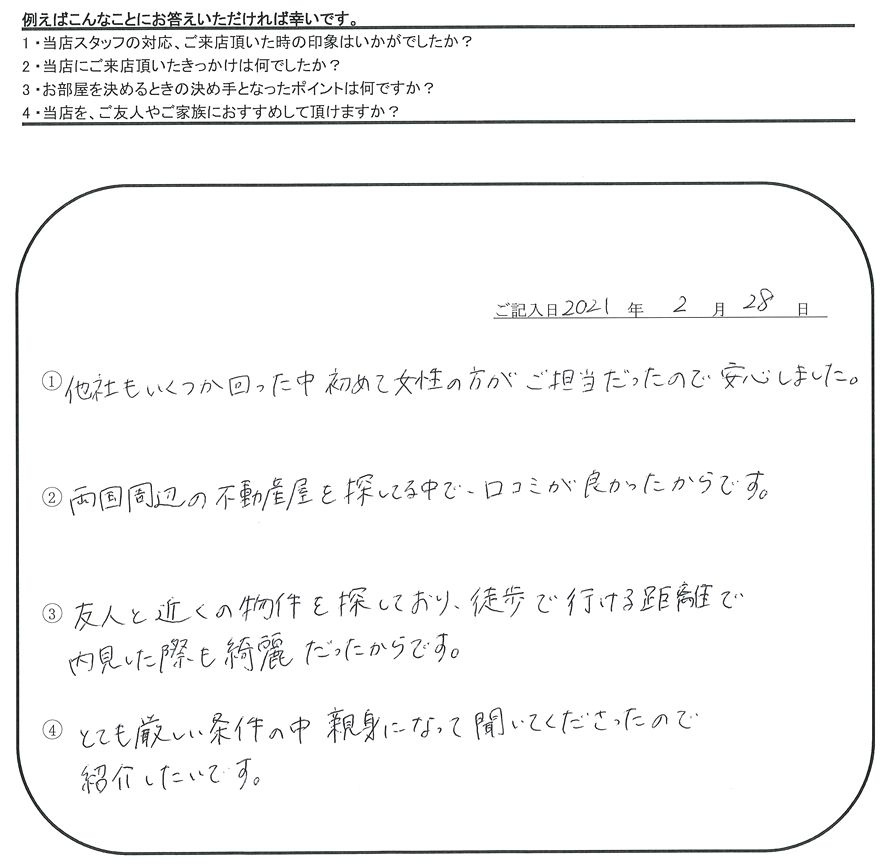 例えばこんなことにお答えいただければ幸いです。
1・当店スタッフの対応、ご来店頂いた時の印象はいかがでしたか？
2・当店にご来店頂いたきっかけは何でしたか？
3・お部屋を決めるときの決め手となったポイントは何ですか？
4・当店を、ご友人やご家族におすすめして頂けますか？
ご記入日2021 年 2 月 28 日
①他社もいくつか回った中 初めて女性の方が ご担当だったので 安心しました。
②両国周辺の不動産屋を探してる中で、口コミが良かったからです。
③友人と近くの物件を探しており、徒歩で行ける距離で
内見した際も綺麗だったからです。
④とても厳しい条件の中 親身になって聞いてくださったので
紹介したいです。